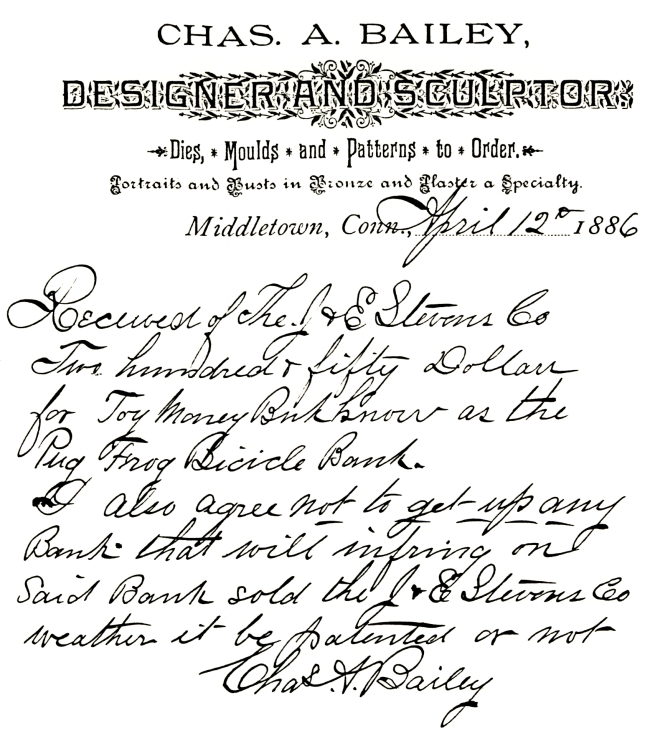 CHAS. A. BAILEY,
DESIGNER AND SCULPTOR.
Dies, * Moulds * and * Patterns * to * Order.
Portraits and Busts in Bronze and Plaster a Specialty.
Middletown, Conn., April 12th 1886
Received of The J & E Stevens Co
Two hundred & fifty Dollars
for Toy Money Bank know as the
Pug Frog Bicicle Bank.
I also agree not to get up any
Bank that will infring on
Said Bank sold the J & E Stevens Co
weather it be patented or not
Chas. A. Bailey